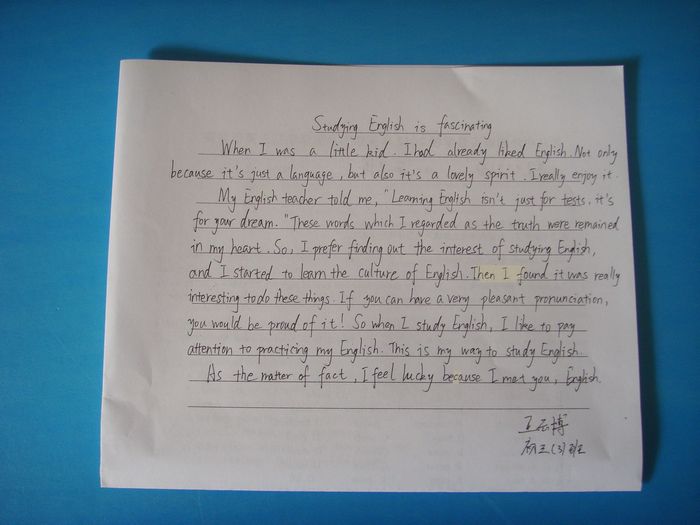 Studying English is fascinating
When I was a little kid. I had already liked English. Not only
because it's just a language, but also it's a lovely spirit. I really enjoy it.
My English teacher told me, "Learning English isn't just for tests. it's
for your dream. "These words which I regarded as the truth were remained
in my heart. So, I prefer finding out the interest of studying English,
and I started to learn the culture of English. Then I found it was really
interesting to do these things. If you can have a very pleasant pronunciation,
you would be proud of it! So when I study English, I like to pay
attention to practicing my English. This is my way to study English.
As the matter of fact, I feel lucky because I met you, English.
王云博
初三(3)班